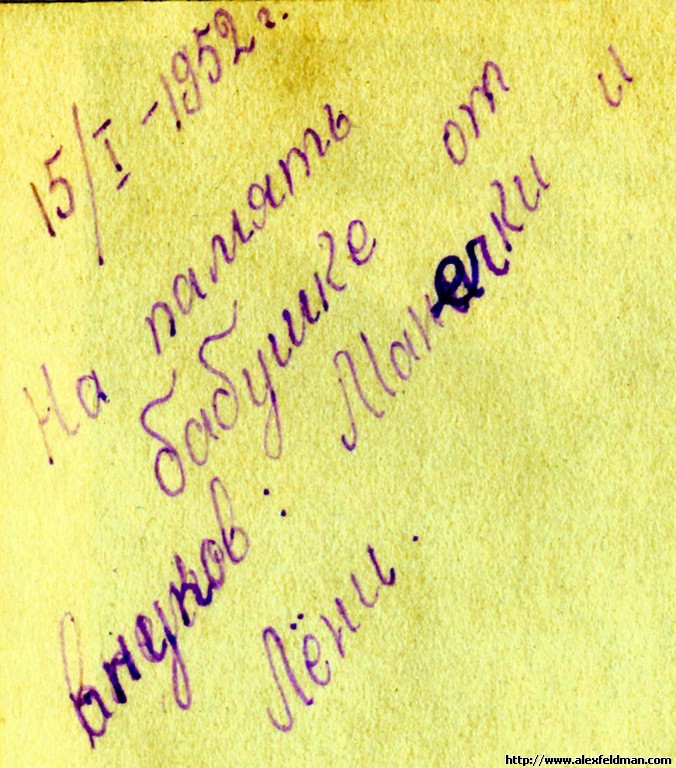 15/I-1952 г.
На память
бабушке от
внуков: Манечки и
Лёни.
http://www.alexfeldman.com